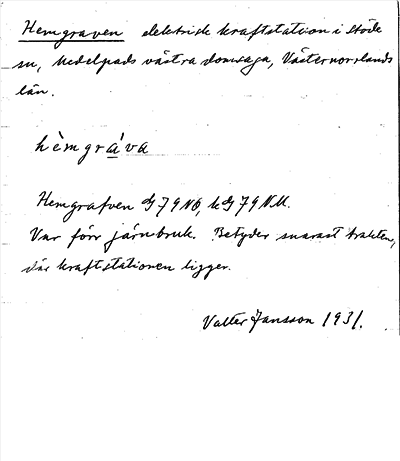 Hemgraven elektrisk kraftstation i Stöde
sn, Medelpads västra domsaga, Västernorrlands
län.
hèmgráva
Hemgrafven G 79 NÖ, G 79 NV.
Var förr järnbruk. Betyder snarast trakten,
där kraftstationen ligger.
Valter Jansson 1931.